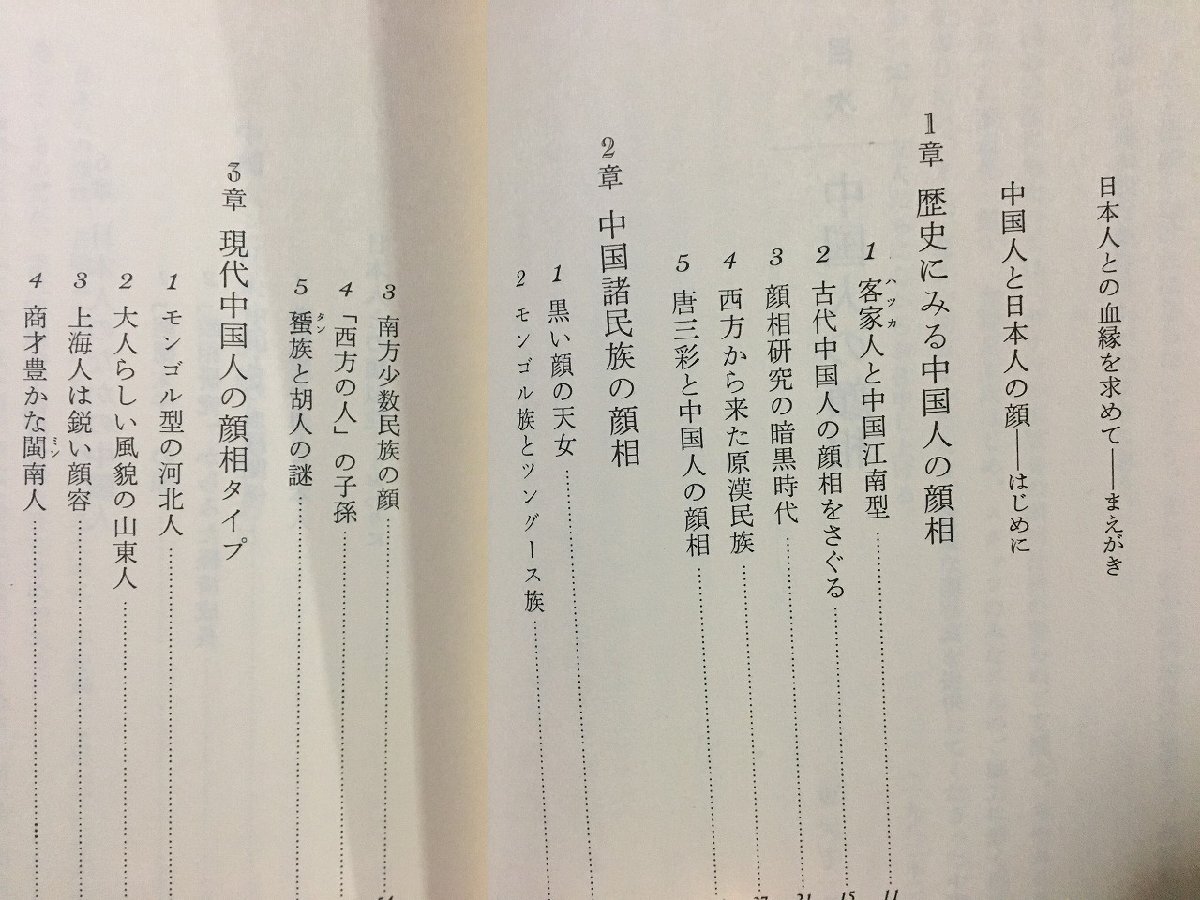 日本人との血縁を求めて――まえがき
中国人と日本人の顔――はじめに
1章 歴史にみる中国人の顔相
1 客家人と中国江南型 11
ハッカ
2 古代中国人の顔相をさぐる 15
3 顔相研究の暗黒時代 21
4 西方から来た原漢民族 27
5 唐三彩と中国人の顔相
2章 中国諸民族の顔相
1 黒い顔の天女
2 モンゴル族とツングース族
3 南方少数民族の顔
4 「西方の人」の子孫
5 蜑族と胡人の謎
タン
3章 現代中国人の顔相タイプ
1 モンゴル型の河北人
2 大人らしい風貌の山東人
3 上海人は鋭い顔容
4 商才豊かな閩南人
ビン